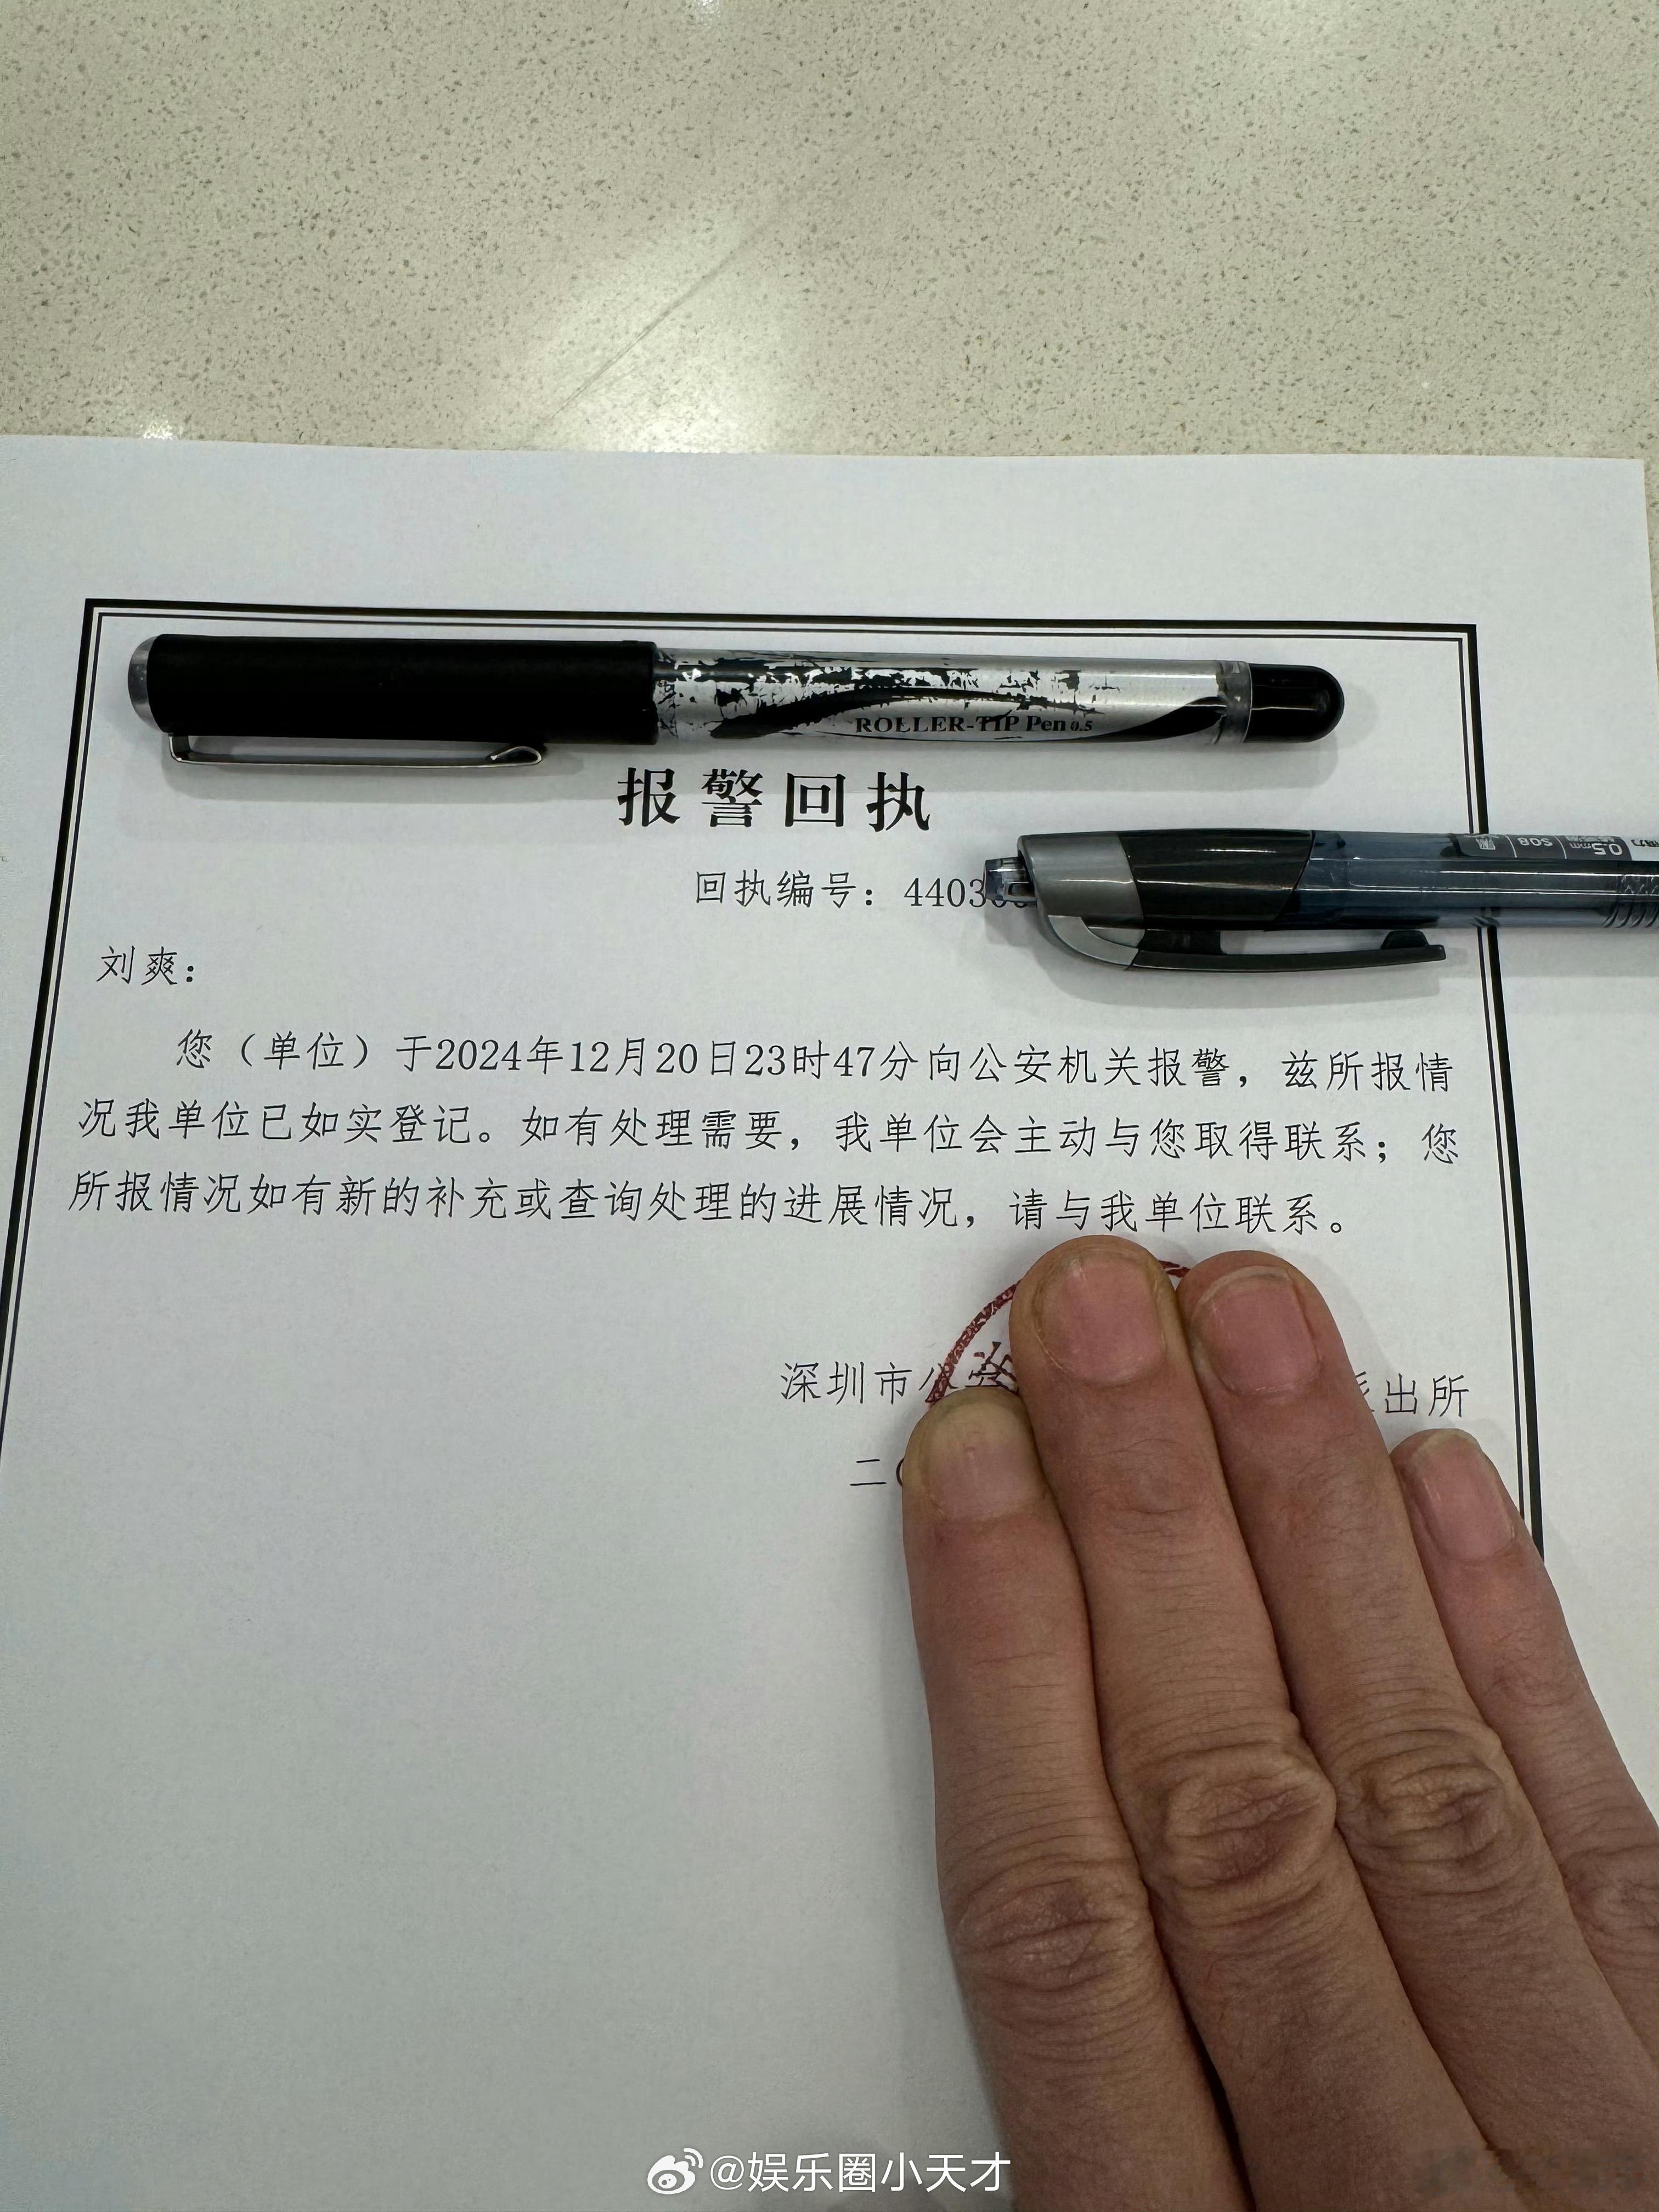 ROLLER-TIP Pen 0.5
报警回执
回执编号：4403
0.5mm
S08
刘爽：
您（单位）于2024年12月20日23时47分向公安机关报警，兹所报情
况我单位已如实登记。如有处理需要，我单位会主动与您取得联系；您
所报情况如有新的补充或查询处理的进展情况，请与我单位联系。
深圳市公安
出所
二
@娱乐圈小天才